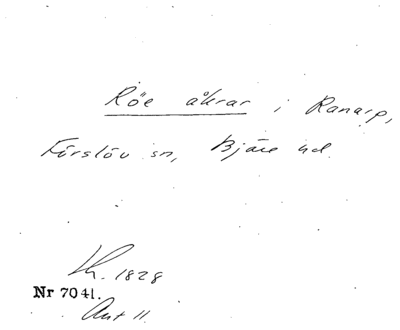 Röe åkrar i Ranarp,
Förslöv sn, Bjäre hd
Kh. 1828
Nr 7041.
Avt 11